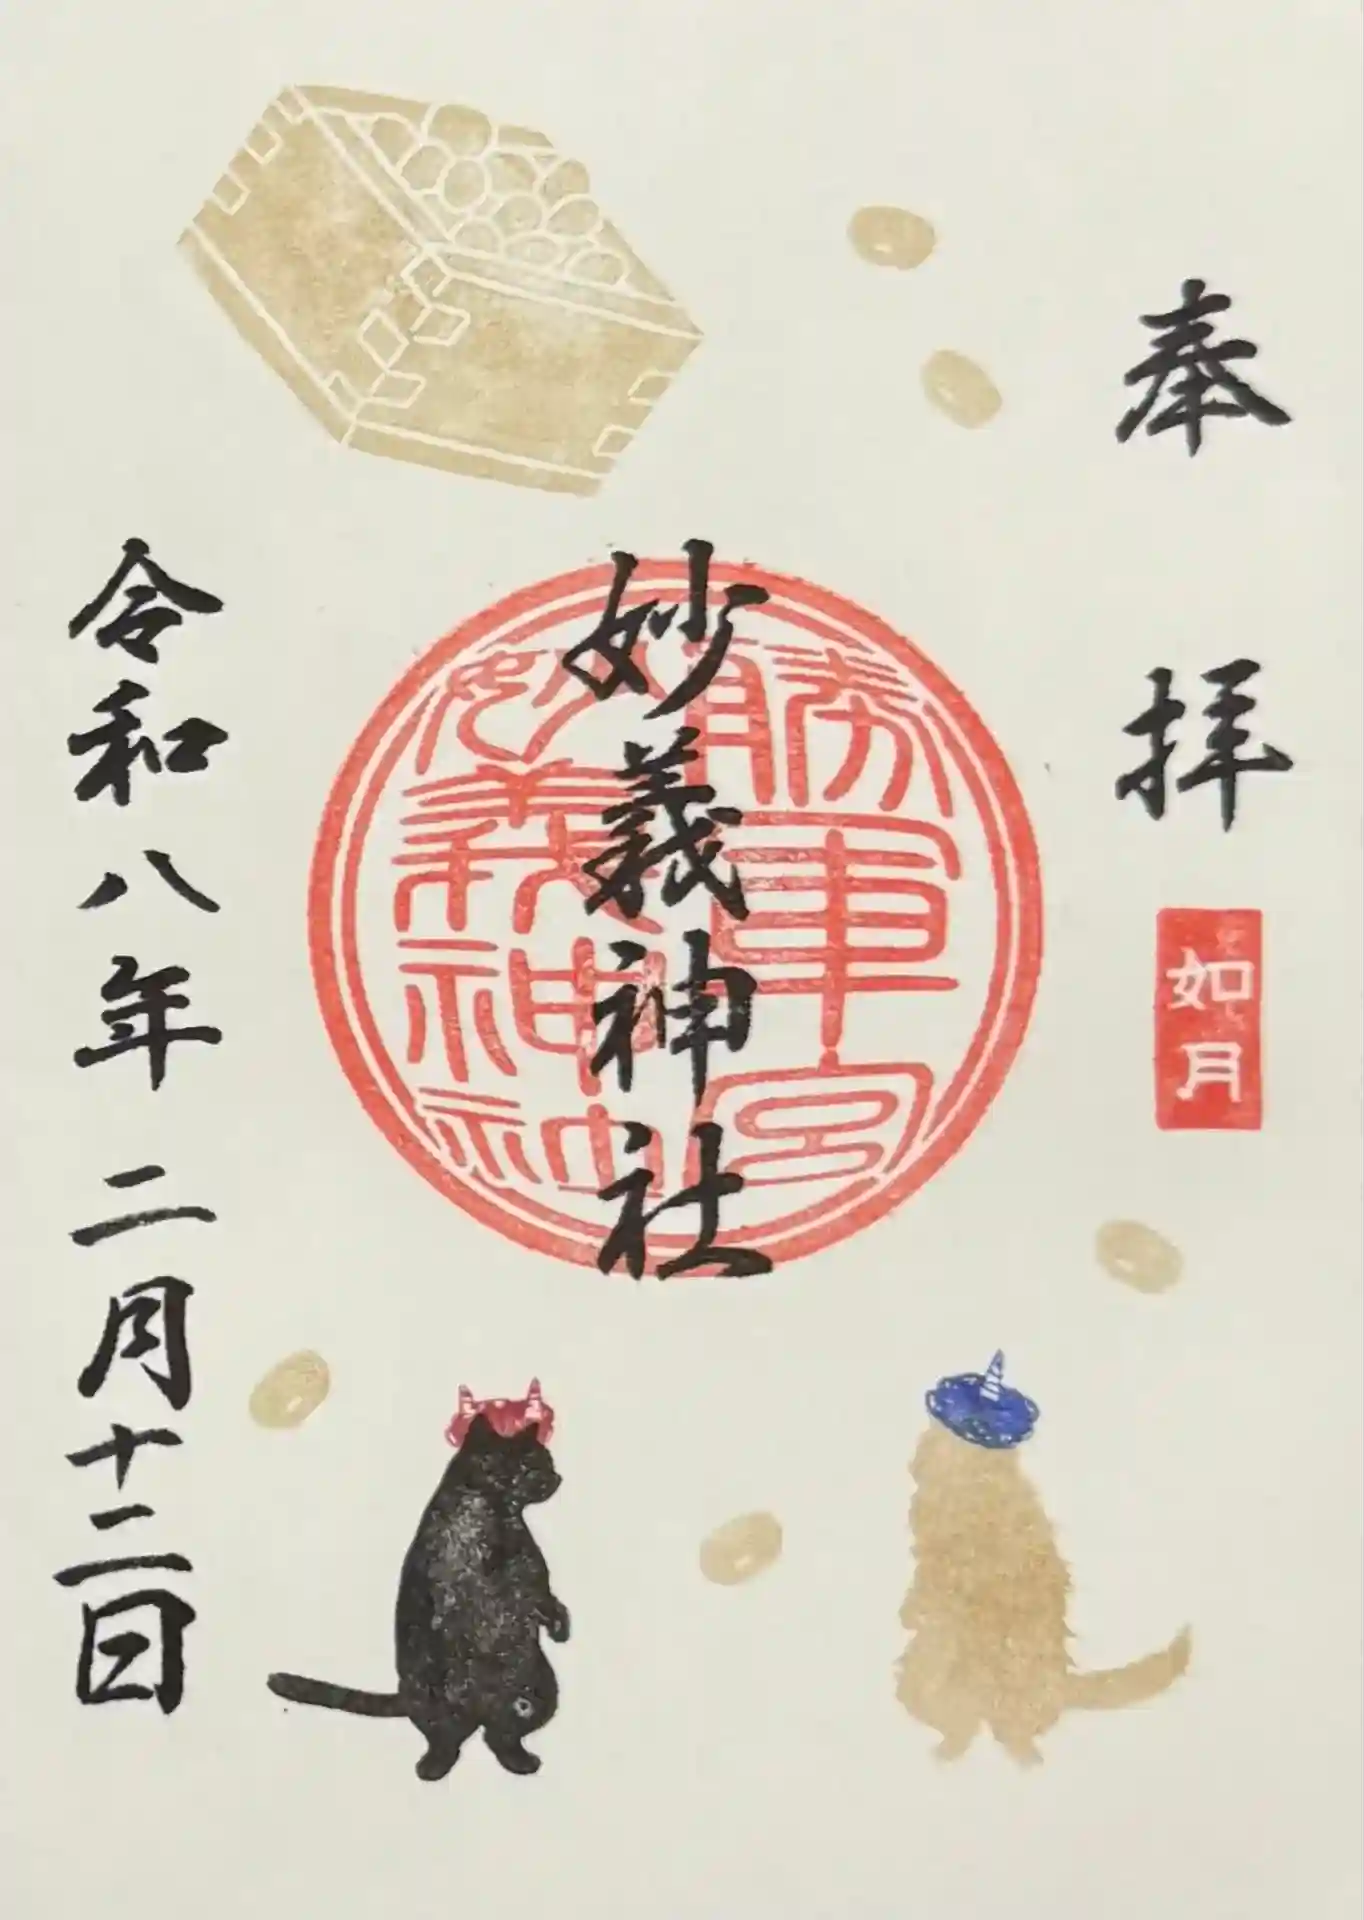 奉拝
如月
妙義神社
勝軍宮
妙義神社
令和八年二月十二日